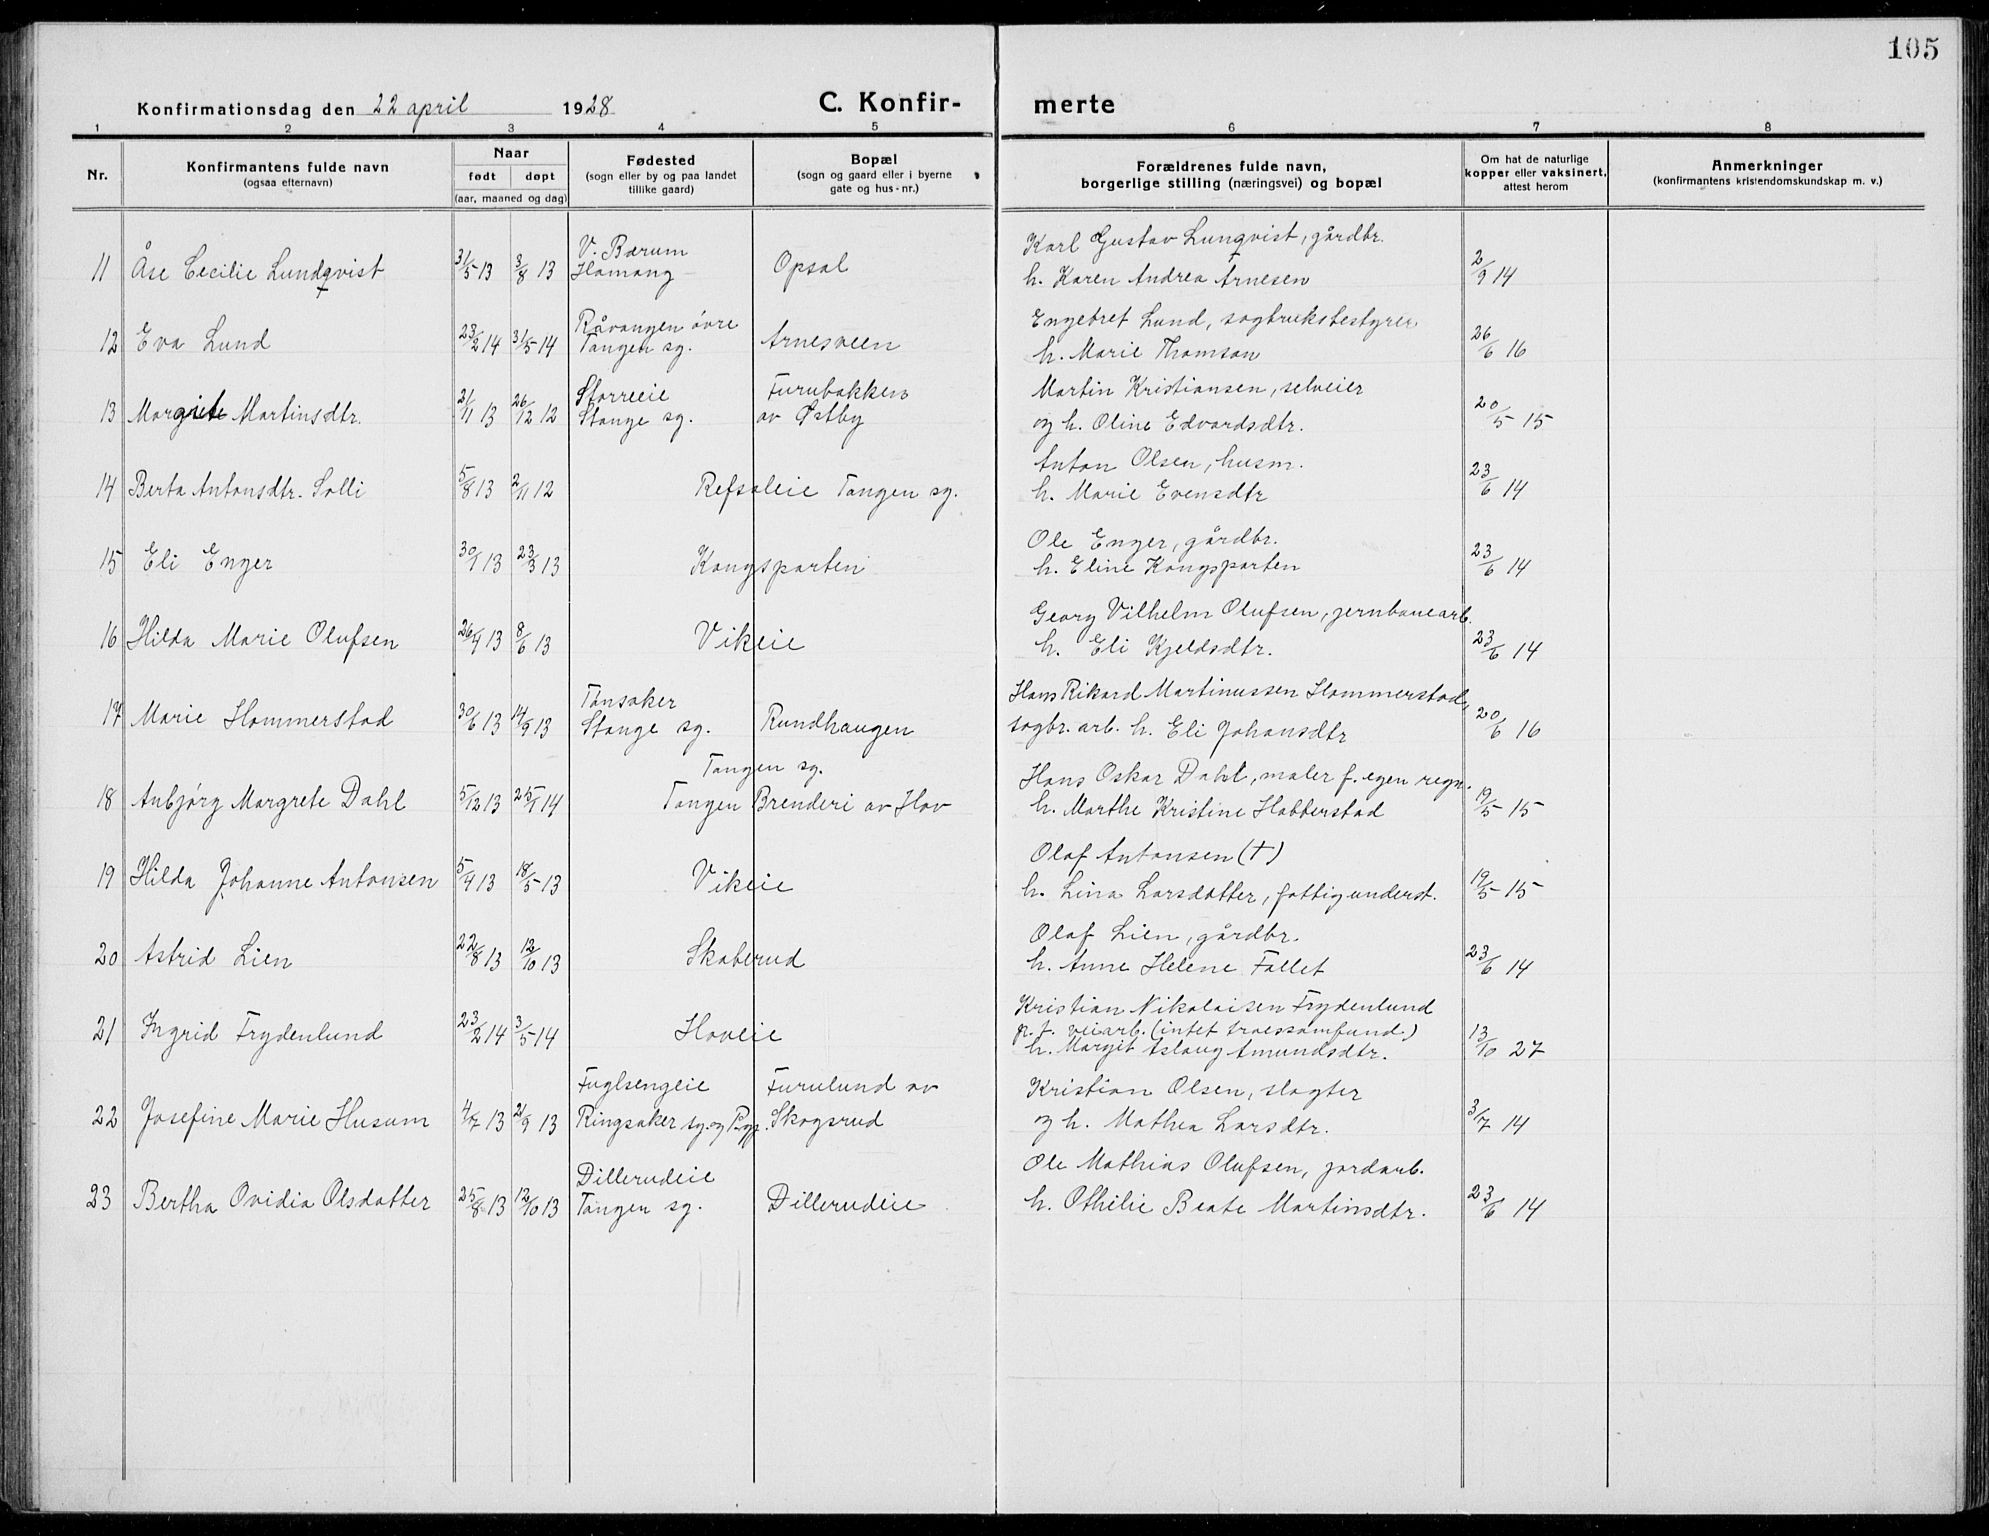 105
Konfirmationsdag den 22 april 1928
C. Konfir-
merte
1 2 3 4 5 6 7 8
Nr.
Konfirmantens fulde navn
(ogsaa efternavn)
Naar
født døpt
(aar, maaned og dag)
Fødested
(sogn eller by og paa landet
tillike gaard)
Bopæl
(sogn og gaard eller i byerne
gate og hus-nr.)
Forældrenes fulde navn,
borgerlige stilling (næringsvei) og bopæl
Om hat de naturlige
kopper eller vaksinert,
attest herom
Anmerkninger
(konfirmantens kristendomskundskap m. v.)
V. Bærum Karl Gustav Lunqvist, gårdbr.
11 Åse Cecilie Lundqvist 31/5 13 3/8 13 Hamang Opsal h. Karen Andrea Arnesen 2/9 14
Råvangen övre Engebret Lund, sagbruksbestyrer
12 Eva Lund 23/2 14 31/5 14 Tangen sg. Arnesveen h. Marie Thomson 26/6 16
Starreeie Furubakken Martin Kristiansen, selveier
13 Margrete Martinsdtr. 21/11 13 26/12 12 Stange sg. av Østby og h. Oline Edvardsdtr. 20/5 15
Anton Olsen, husm.
14 Berta Antonsdtr. Solli 5/8 13 2/11 12 Refsaleie Tangen sg. h. Marie Evensdtr 23/6 14
Ole Enger, gårdbr.
15 Eli Enger 30/1 13 23/3 13 Kongsparten h. Eline Kongsparten 23/6 14
Georg Vilhelm Olufsen, jernbanearb.
16 Hilda Marie Olufsen 26/4 13 8/6 13 Vikeie h. Eli Kjeldsdtr. 23/6 14
Tønsaker Hans Rikard Martinussen Hammerstad,
17 Marie Hammerstad 30/6 13 14/9 13 Stange sg. Rundhaugen sagbr. arb. h. Eli Johansdtr 20/6 16
Tangen sg. Hans Oskar Dahl, maler f. egen regn.
18 Anbjørg Margrete Dahl 5/12 13 25/1 14 Tangen Brenderi av Hov h. Marthe Kristine Habberstad 19/5 15
Olaf Antonsen (†)
19 Hilda Johanne Antonsen 5/4 13 18/5 13 Vikeie h. Lina Larsdatter, fattigunderst. 19/5 15
Olaf Lien, gårdbr.
20 Astrid Lien 22/8 13 12/10 13 Skaberud h. Anne Helene Fallet 23/6 14
Kristian Nikolaisen Frydenlund
p. t. veiarb. (intet troessamfund)
21 Ingrid Frydenlund 23/2 14 3/5 14 Hoveie h. Margit Aslaug Amundsdtr. 13/10 27
Fuglsengeie Furulund av Kristian Olsen, slagter
22 Josefine Marie Husum 4/7 13 21/9 13 Ringsaker sg. og Pgj. Skogsrud og h. Mathea Larsdtr. 3/7 14
Dillerudeie Ole Mathias Olufsen, jordarb.
23 Bertha Ovidia Olsdatter 25/8 13 12/10 13 Tangen sg. Dillerudeie h. Othilie Beate Martinsdtr. 23/6 14